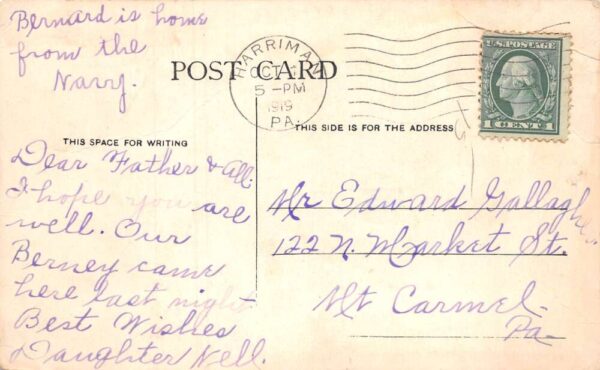 Bernard is home
from the
Navy.
POST CARD
HARRIMAN
OCT
5 - PM
1919
PA.
U.S. POSTAGE
1 CENT 1
THIS SPACE FOR WRITING
THIS SIDE IS FOR THE ADDRESS
Dear Father & all.
I hope you are
well. Our
Berney came
here last night
Best Wishes
Daughter Nell.
Mr Edward Gallagher
122 N. Market St.
Mt Carmel-
Pa-